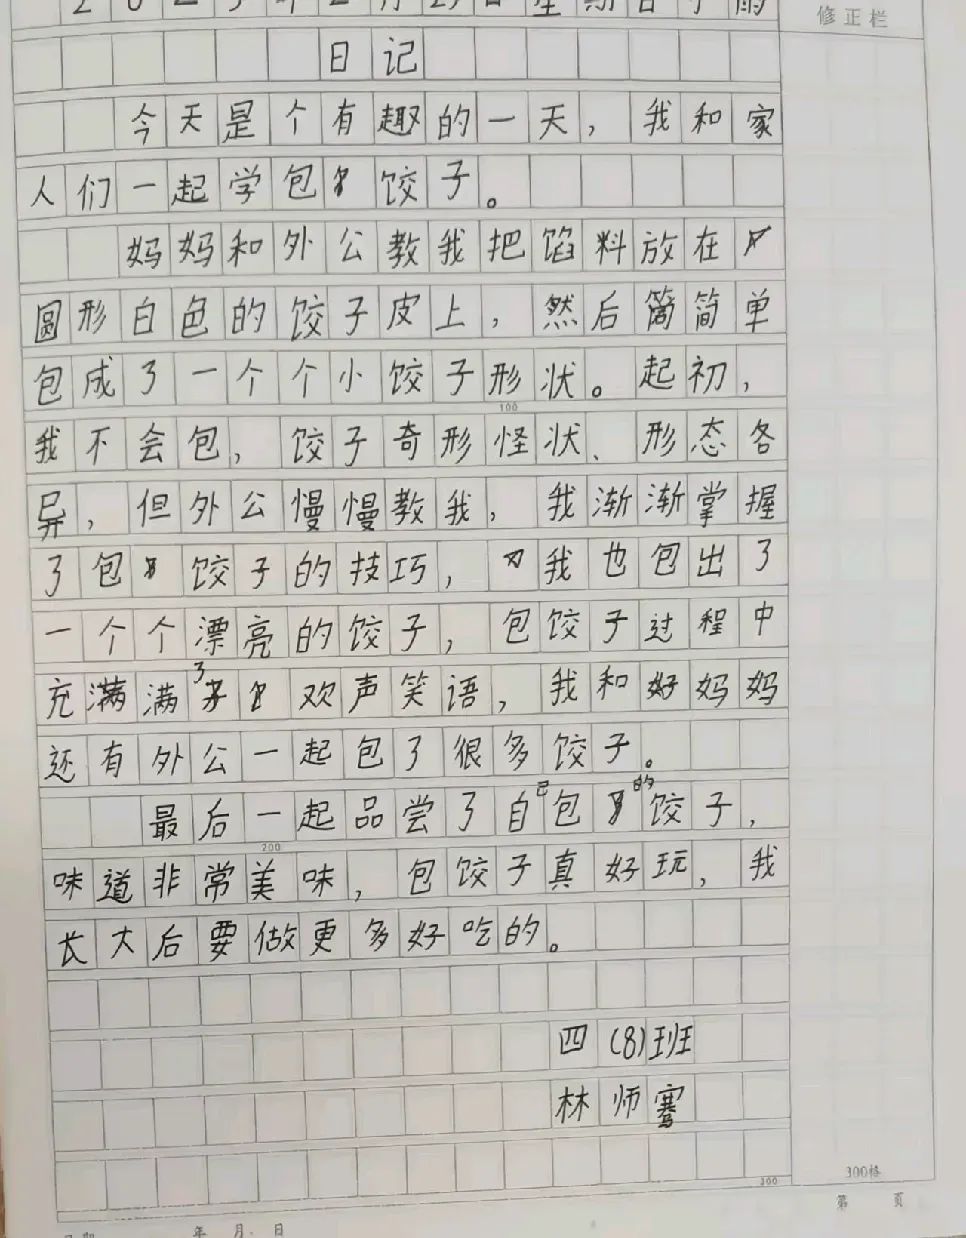 修正栏
日记
今天是个有趣的一天，我和家
人们一起学包饺子。
妈妈和外公教我把馅料放在
圆形白色的饺子皮上，然后简简单
包成了一个个小饺子形状。起初，
100
我不会包，饺子奇形怪状、形态各
异，但外公慢慢教我，我渐渐掌握
了包饺子的技巧，我也包出了
一个个漂亮的饺子，包饺子过程中
充满满了欢声笑语，我和好妈妈
还有外公一起包了很多饺子。
最后一起品尝了自己包的饺子，
200
味道非常美味，包饺子真好玩，我
长大后要做更多好吃的。
四(8)班
林师骞
300格
300
第 页
年 月 日